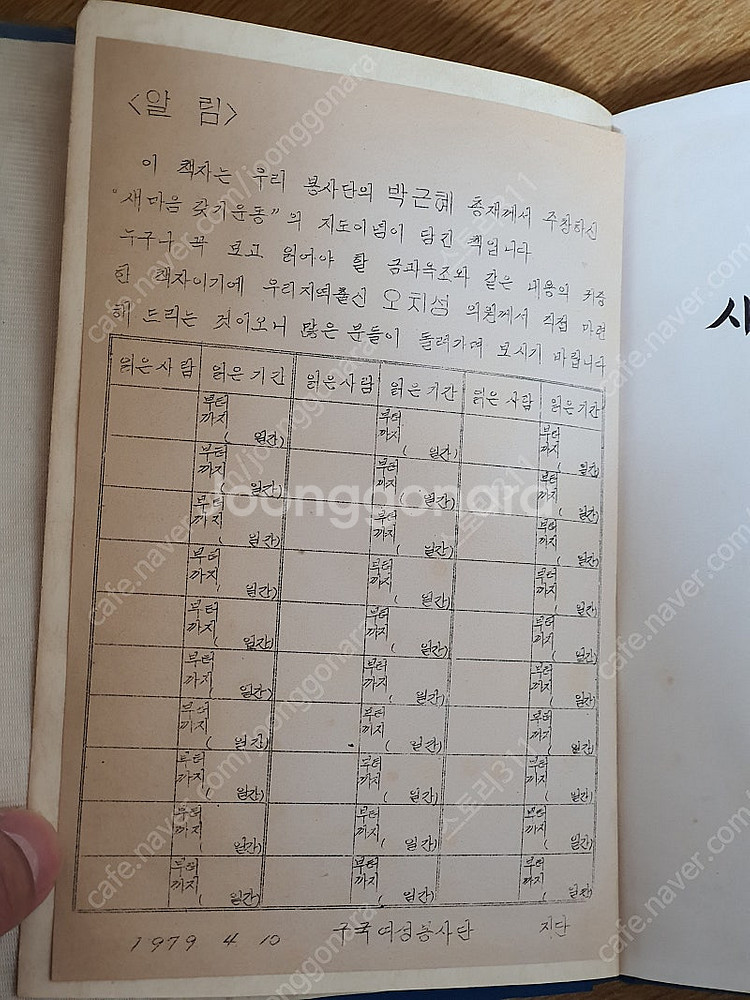 <알 림>
이 책자는 우리 봉사단의 박근혜 총재께서 주창하신
"새마음 갖기운동"의 지도이념이 담긴 책입니다
누구나 꼭 보고 읽어야 할 금과옥조와 같은 내용의 귀중
한 책자이기에 우리지역출신 오치성 의원께서 직접 마련
해 드리는 것이오니 많은 분들이 돌려가며 보시기 바랍니다
읽은 사람 읽은 기간 읽은 사람 읽은 기간 읽은 사람 읽은 기간
부터 부터 부터
까지 ( 일간) 까지 ( 일간) 까지 ( 일간)
부터 부터 부터
까지 ( 일간) 까지 ( 일간) 까지 ( 일간)
부터 부터 부터
까지 ( 일간) 까지 ( 일간) 까지 ( 일간)
부터 부터 부터
까지 ( 일간) 까지 ( 일간) 까지 ( 일간)
부터 부터 부터
까지 ( 일간) 까지 ( 일간) 까지 ( 일간)
부터 부터 부터
까지 ( 일간) 까지 ( 일간) 까지 ( 일간)
부터 부터 부터
까지 ( 일간) 까지 ( 일간) 까지 ( 일간)
부터 부터 부터
까지 ( 일간) 까지 ( 일간) 까지 ( 일간)
부터 부터 부터
까지 ( 일간) 까지 ( 일간) 까지 ( 일간)
부터 부터 부터
까지 ( 일간) 까지 ( 일간) 까지 ( 일간)
1979 4 10 구국여성봉사단 지단
사
joonggonara
cafe.naver.com/joonggonara
스토리311